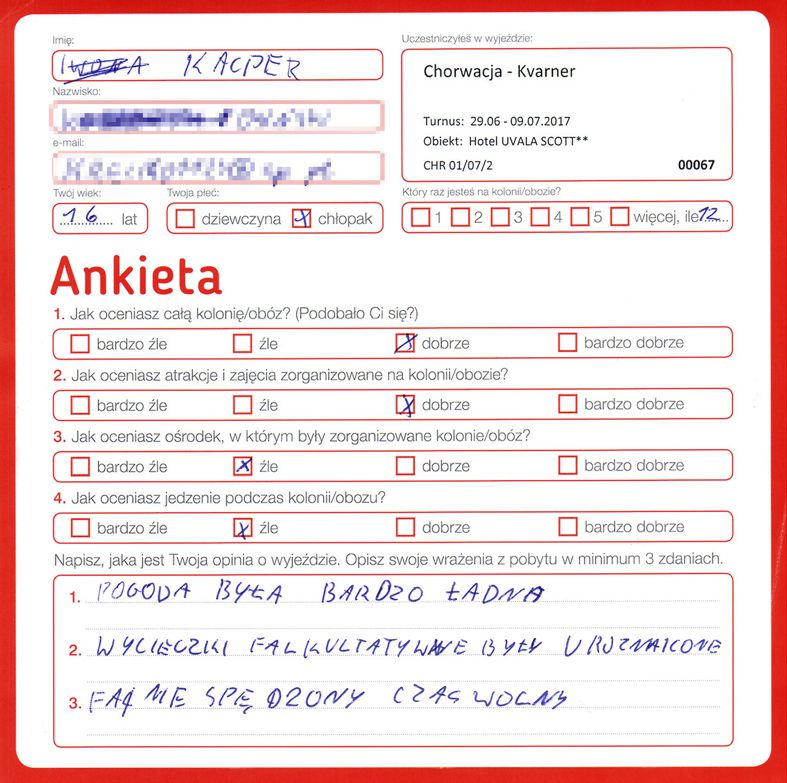 Imię:
KACPER
Nazwisko:
e-mail:
Twój wiek:
16 lat
Twoja płeć:
dziewczyna x chłopak
Uczestniczyłeś w wyjeździe:
Chorwacja - Kvarner
Turnus: 29.06 - 09.07.2017
Obiekt: Hotel UVALA SCOTT**
CHR 01/07/2 00067
Który raz jesteś na kolonii/obozie?
1 2 3 4 5 więcej, ile 12
Ankieta
1. Jak oceniasz całą kolonię/obóz? (Podobało Ci się?)
bardzo źle źle x dobrze bardzo dobrze
2. Jak oceniasz atrakcje i zajęcia zorganizowane na kolonii/obozie?
bardzo źle źle x dobrze bardzo dobrze
3. Jak oceniasz ośrodek, w którym były zorganizowane kolonie/obóz?
bardzo źle x źle dobrze bardzo dobrze
4. Jak oceniasz jedzenie podczas kolonii/obozu?
bardzo źle x źle dobrze bardzo dobrze
Napisz, jaka jest Twoja opinia o wyjeździe. Opisz swoje wrażenia z pobytu w minimum 3 zdaniach.
1. POGODA BYŁA BARDZO ŁADNA
2. WYCIECZKI BYŁY
3. SPĘDZONY CZAS WOLNY